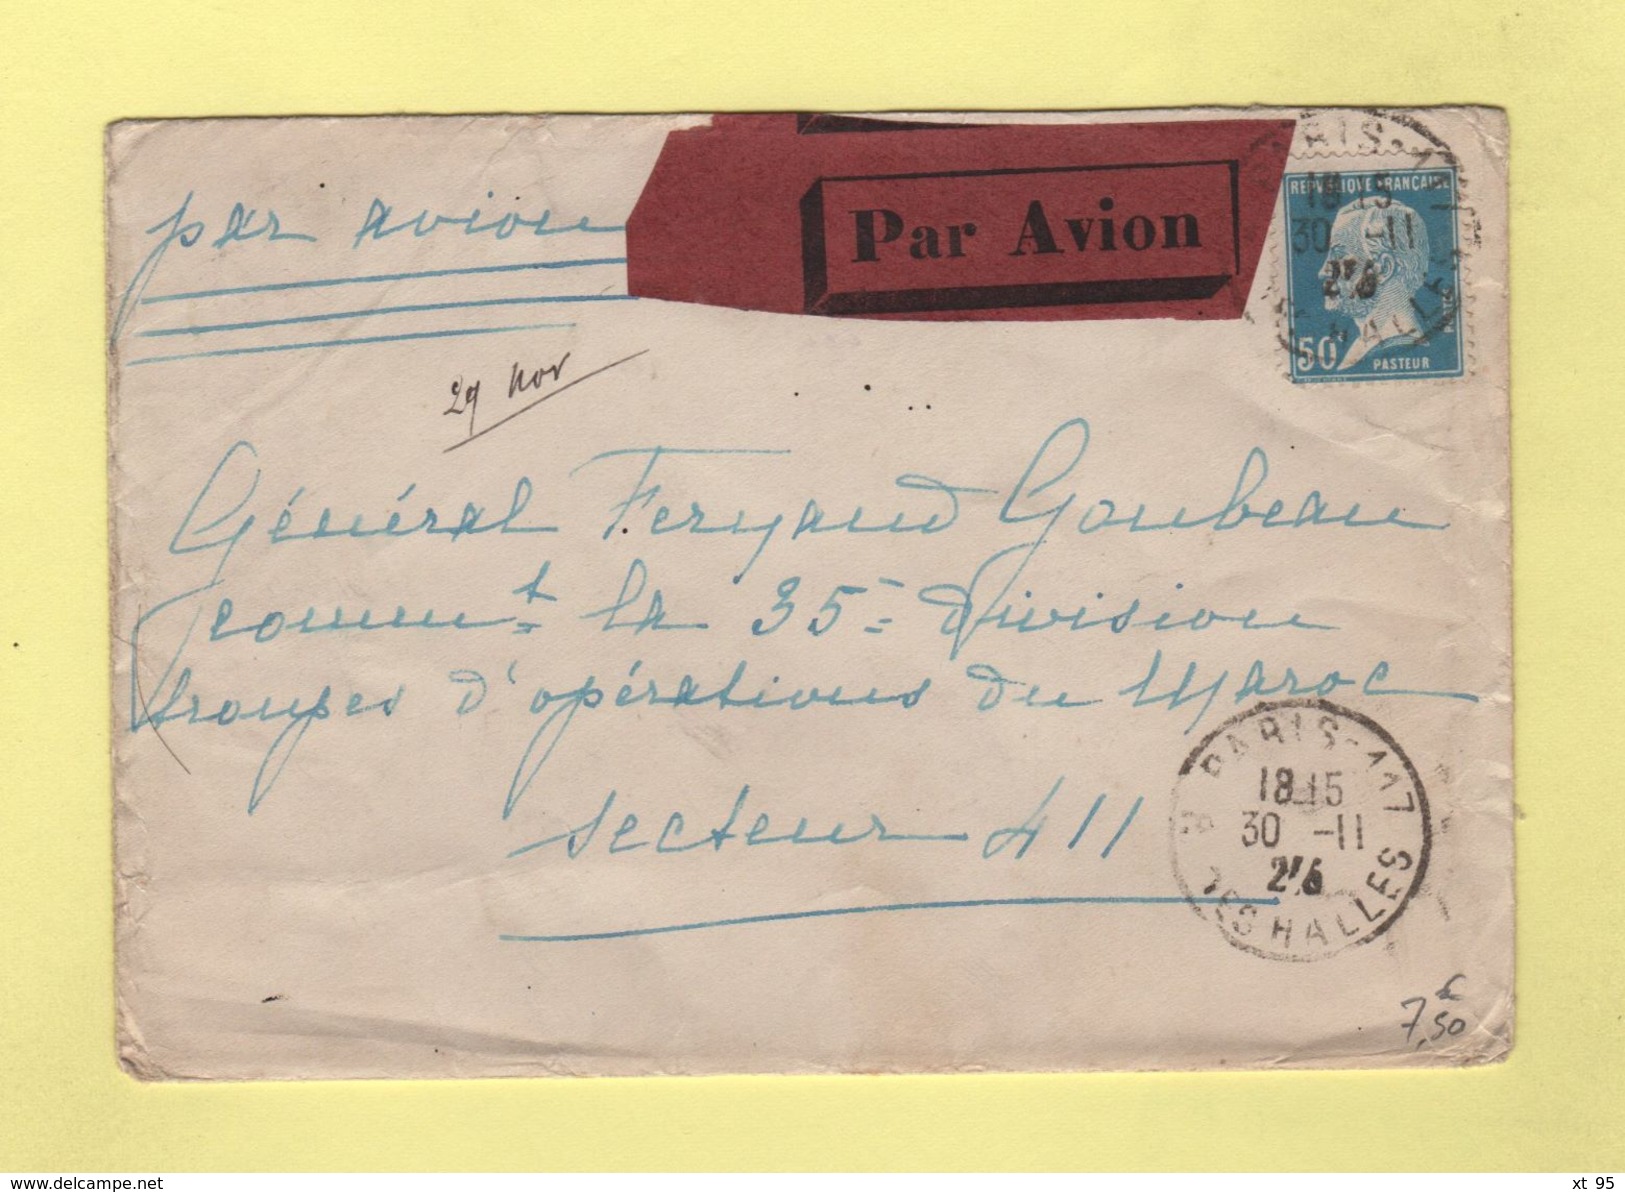 par avion
Par Avion
REPVBLIQVE FRANÇAISE
50
PASTEUR
POSTES
PARIS-117
18 15
30 -11
LES HALLES
29 nov
Général Fernand Goubeau
comm.t la 35e division
troupes d'opérations du Maroc
secteur 411
PARIS-117
18 15
30 -11
LES HALLES
7,50 €
delcampe.net
xt 95